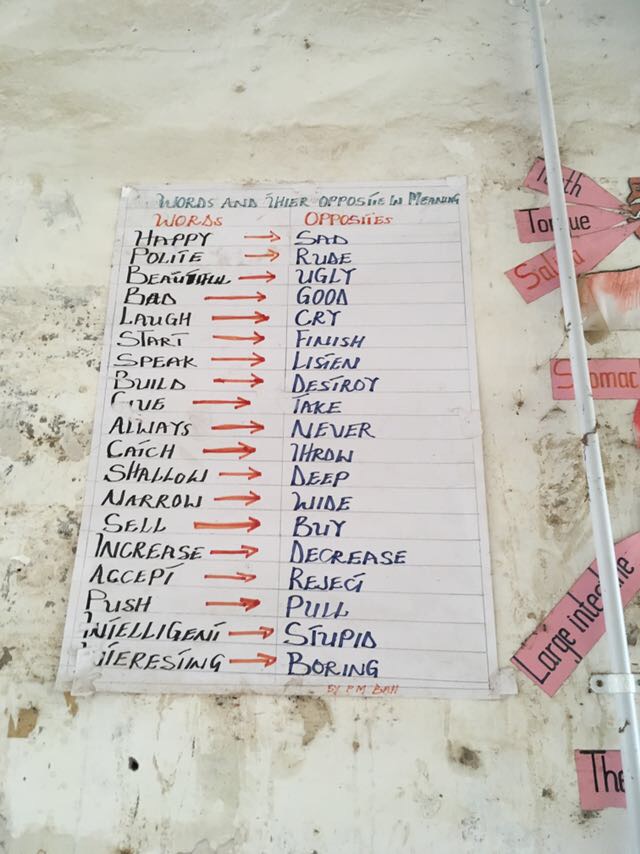 WORDS AND THIER OPPOSITE IN MEANING
WORDS OPPOSITES
HAPPY → SAD
POLITE → RUDE
BEAUTIFUL → UGLY
BAD → GOOD
LAUGH → CRY
START → FINISH
SPEAK → LISTEN
BUILD → DESTROY
GIVE → TAKE
ALWAYS → NEVER
CATCH → THROW
SHALLOW → DEEP
NARROW → WIDE
SELL → BUY
INCREASE → DECREASE
ACCEPT → REJECT
PUSH → PULL
INTELLIGENT → STUPID
TERESTING → BORING
BY P M BAH
Tongue
Saliva
Stomac
Large intestine
The